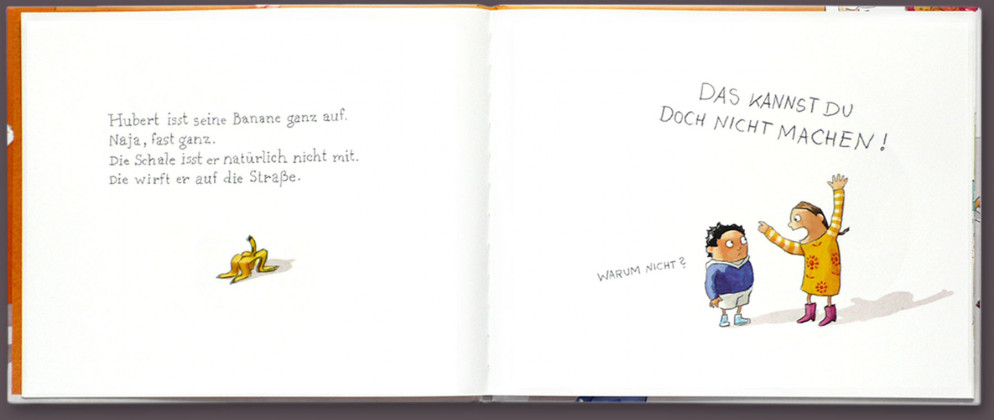 Hubert isst seine Banane ganz auf.
Naja, fast ganz.
Die Schale isst er natürlich nicht mit.
Die wirft er auf die Straße.
DAS KANNST DU
DOCH NICHT MACHEN!
WARUM NICHT?